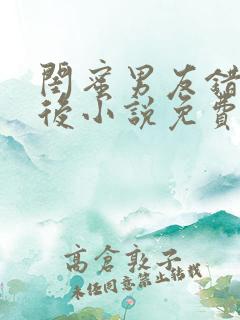 閨蜜男友錯
後小說免費
高倉敦子
未經同意禁止轉載